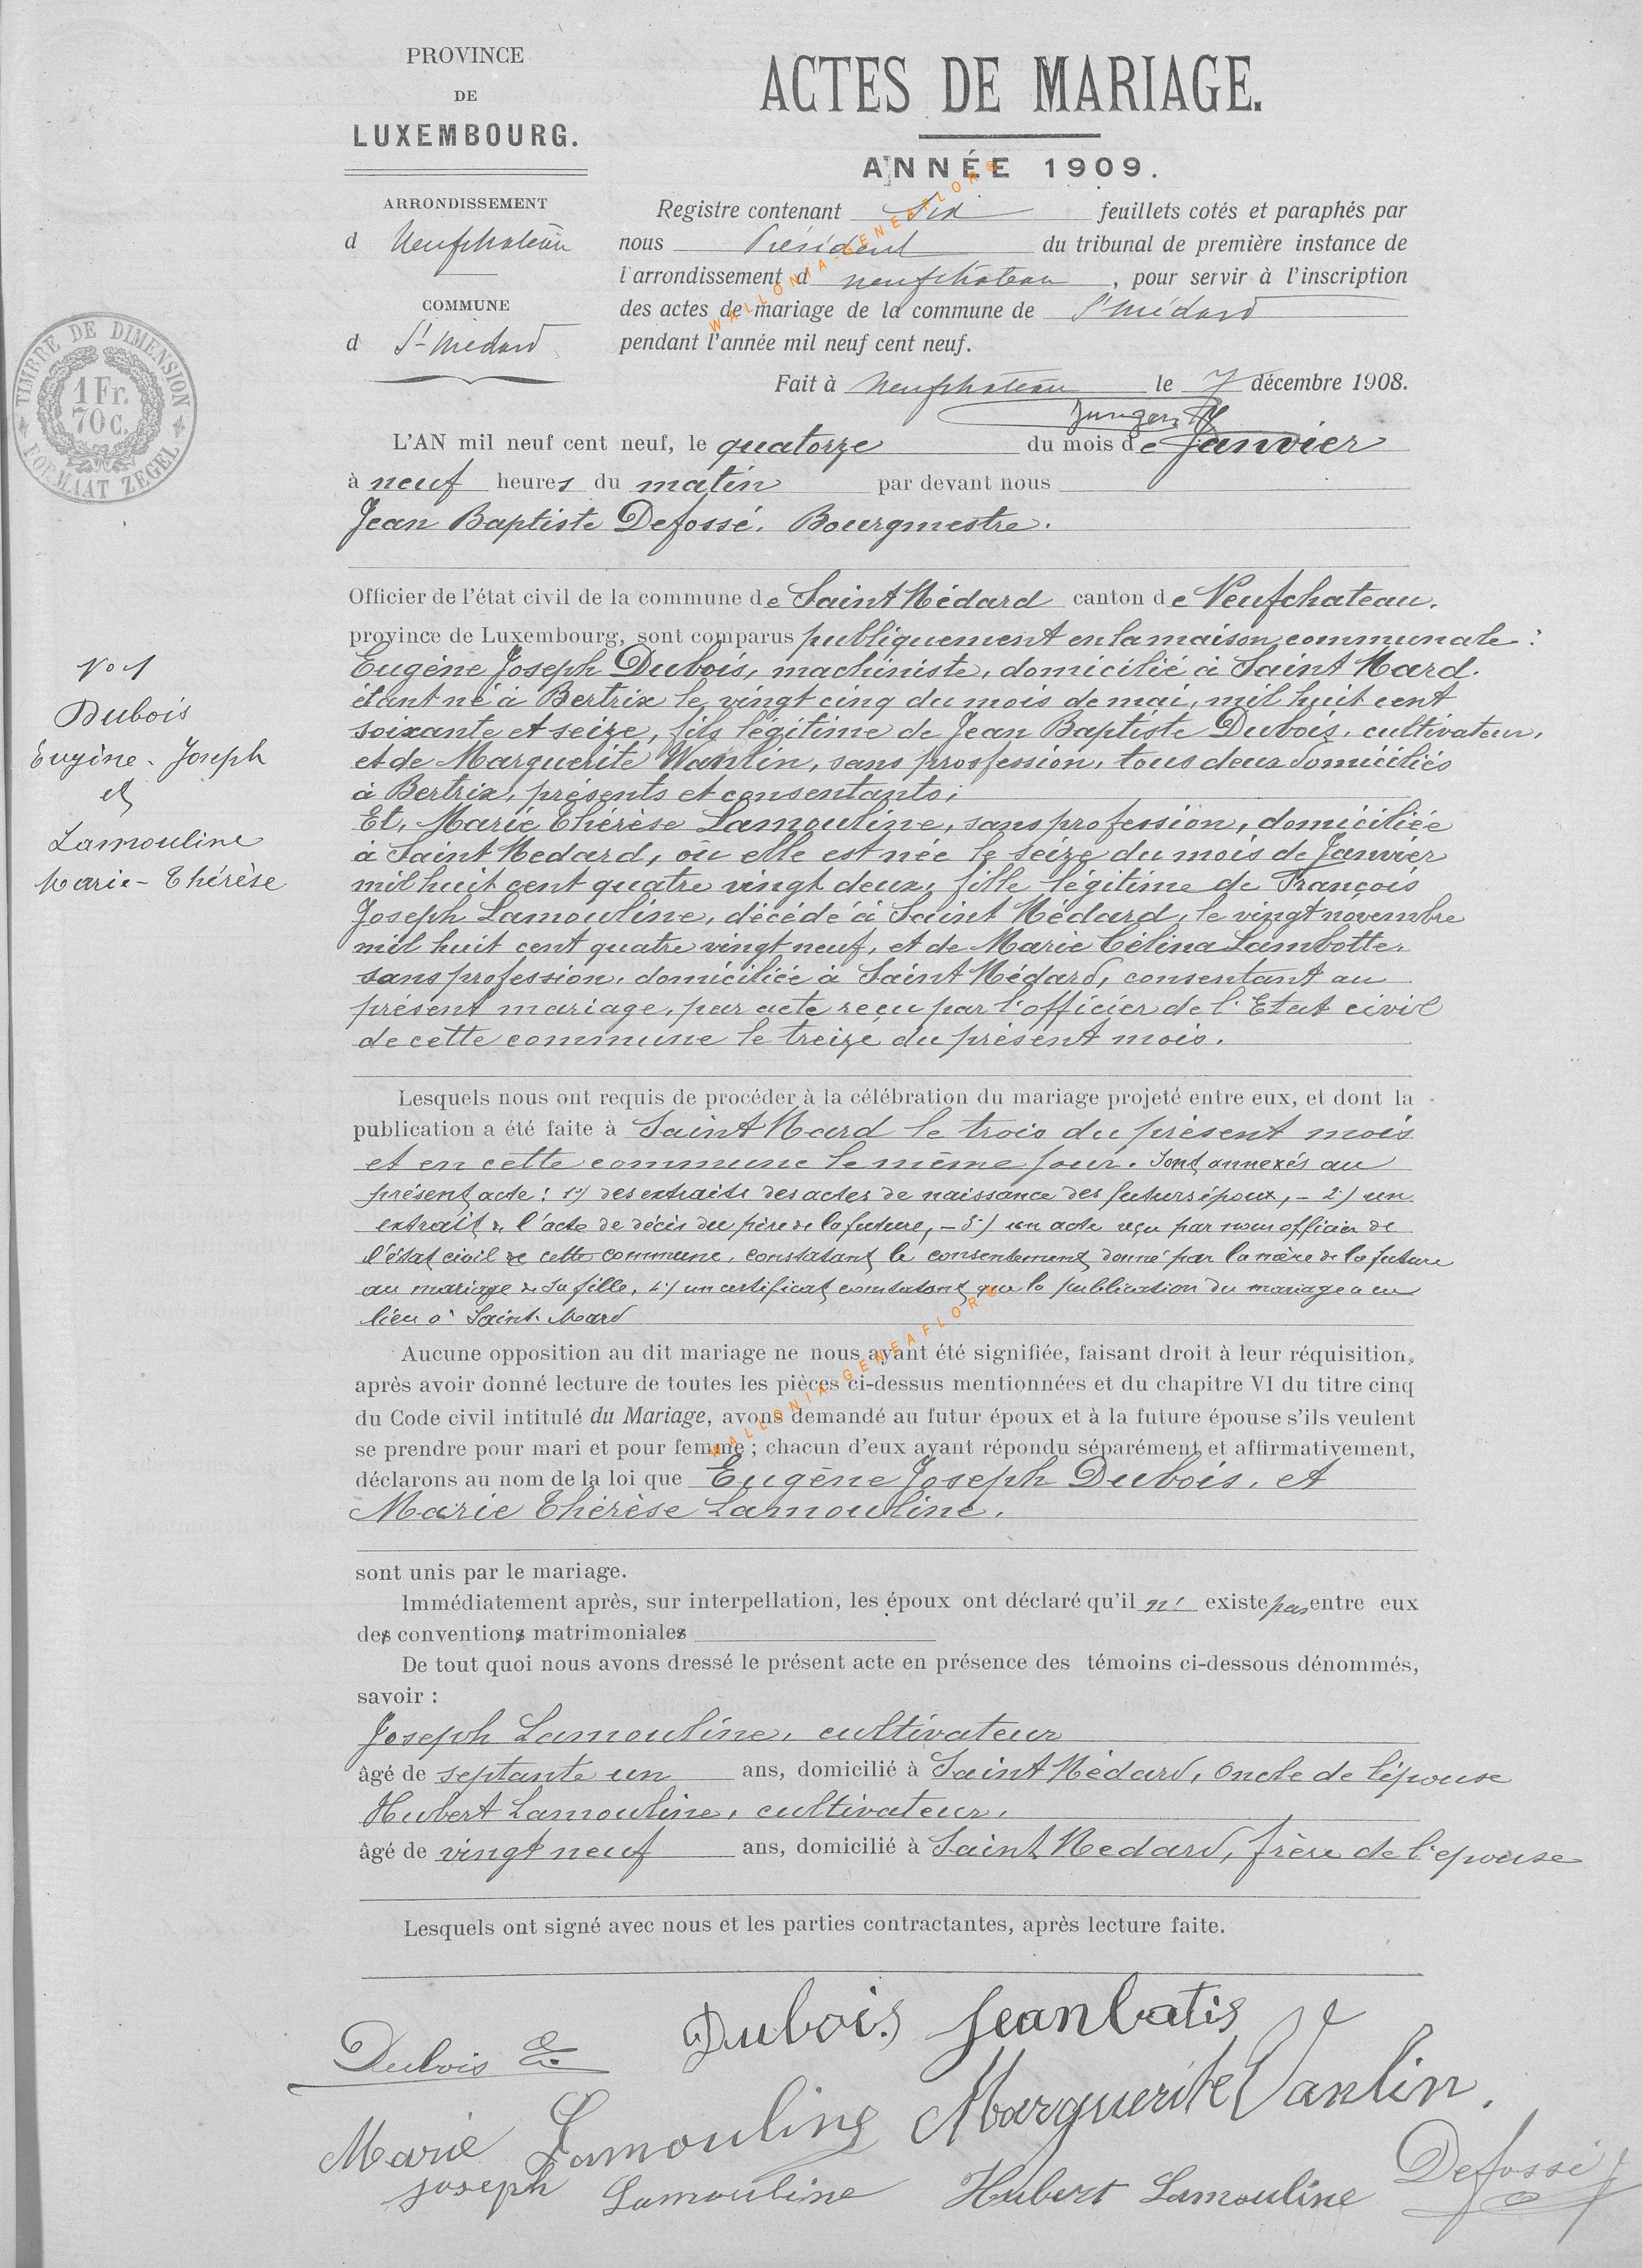 PROVINCE
DE
LUXEMBOURG.
ARRONDISSEMENT
d Neufchateau
COMMUNE
d St-Médard
TIMBRE DE DIMENSION
1 Fr.
70 c.
FORMAAT ZEGEL
ACTES DE MARIAGE.
ANNÉE 1909.
Registre contenant Six feuillets cotés et paraphés par
nous Président du tribunal de première instance de
l'arrondissement d neufchateau, pour servir à l'inscription
des actes de mariage de la commune de St Médard
pendant l'année mil neuf cent neuf.
Fait à Neufchateau le 7 décembre 1908.
L'AN mil neuf cent neuf, le quatorze du mois de Janvier
à neuf heures du matin par devant nous
Jean Baptiste Defossé. Bourgmestre.
Officier de l'état civil de la commune de Saint Médard canton de Neufchateau.
province de Luxembourg, sont comparus publiquement en la maison communale :
N° 1
Dubois
Eugène-Joseph
et
Lamouline
Marie-Thérèse
Eugène Joseph Dubois, machiniste, domicilié à Saint Mard.
étant né à Bertrix le vingt cinq du mois de mai, mil huit cent
soixante et seize, fils légitime de Jean Baptiste Dubois, cultivateur,
et de Marguerite Wanlin, sans prosfession, tous deux domiciliés
à Bertrix, présents et consentants;
Et, Marie Thérèse Lamouline, sans profession, domiciliée
à Saint Medard, où elle est née le seize du mois de Janvier
mil huit cent quatre vingt deux, fille légitime de François
Joseph Lamouline, décédé à Saint Médard, le vingt novembre
mil huit cent quatre vingt neuf, et de Marie Célina Lambotte,
sans profession, domiciliée à Saint Médard, consentant au
présent mariage, par acte reçu par l'officier de l'Etat civil
de cette commune le treize du présent mois.
Lesquels nous ont requis de procéder à la célébration du mariage projeté entre eux, et dont la
publication a été faite à Saint Mard le trois du présent mois
et en cette commune le même jour. Sont annexés au
présent acte : 1°/ des extraits des actes de naissance des futurs époux, – 2°/ un
extrait de l'acte de décès du père de la future, – 3°/ un acte reçu par nous officier de
l'état civil de cette commune, constatant le consentement donné par la mère de la future
au mariage de sa fille, 4°/ un certificat constatant que la publication du mariage a eu
lieu à Saint-Mard
Aucune opposition au dit mariage ne nous ayant été signifiée, faisant droit à leur réquisition,
après avoir donné lecture de toutes les pièces ci-dessus mentionnées et du chapitre VI du titre cinq
du Code civil intitulé du Mariage, avons demandé au futur époux et à la future épouse s'ils veulent
se prendre pour mari et pour femme ; chacun d'eux ayant répondu séparément et affirmativement,
déclarons au nom de la loi que Eugène Joseph Dubois, et
Marie Thérèse Lamouline.
sont unis par le mariage.
Immédiatement après, sur interpellation, les époux ont déclaré qu'il n' existe pas entre eux
des conventions matrimoniales
De tout quoi nous avons dressé le présent acte en présence des témoins ci-dessous dénommés,
savoir :
Joseph Lamouline, cultivateur
âgé de septante un ans, domicilié à Saint Médard, Oncle de l'épouse
Hubert Lamouline, cultivateur,
âgé de vingt neuf ans, domicilié à Saint Medard, frère de l'epouse
Lesquels ont signé avec nous et les parties contractantes, après lecture faite.
Dubois E. Dubois Jeanbatis te
Marie Lamouline Marguerite Vanlin.
Joseph Lamouline Hubert Lamouline Defossé
WALLONIA-GENEAFLOR®
WALLONIA-GENEAFLOR®